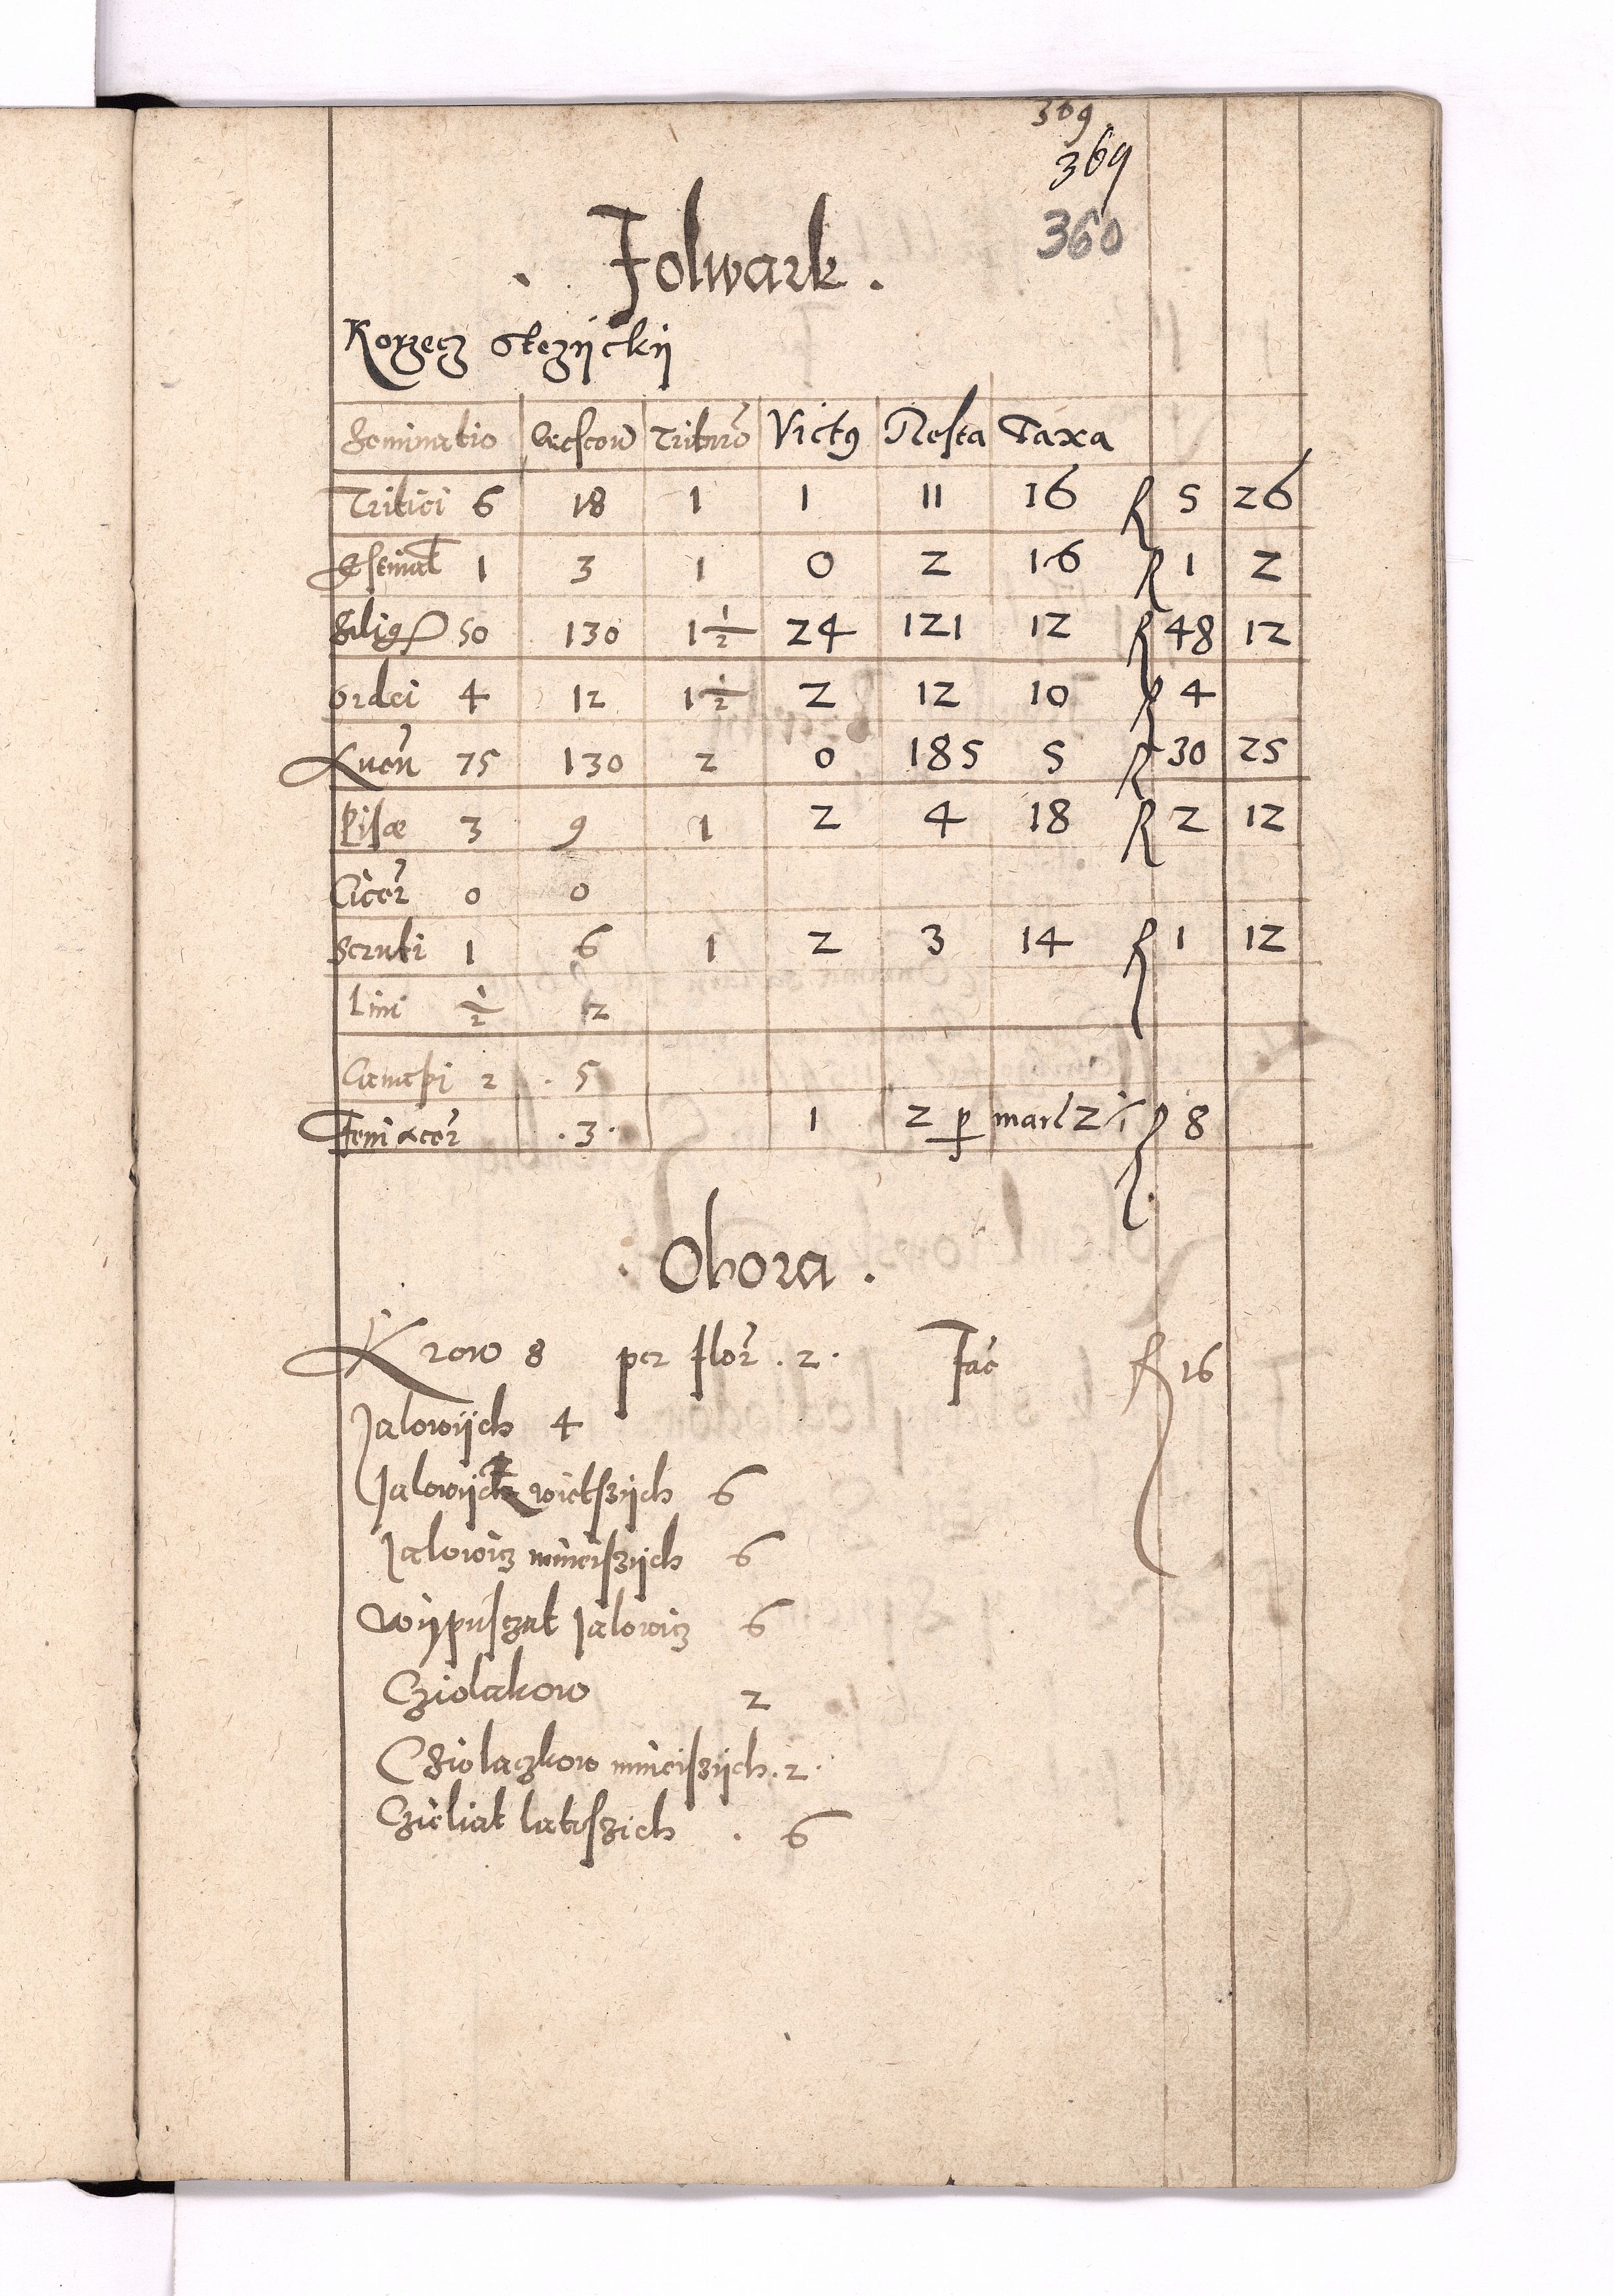 369
369
360
. Folwark .
Korzecz Stezÿckÿ
Seminatio Crescen Triture Victus Resta Taxa
Tritici 6 18 1 1 11 16 R 5 26
Estiual 1 3 1 0 2 16 R 1 2
Siligis 50 130 1 1/2 24 121 12 R 48 12
Ordei 4 12 1 1/2 2 12 10 R 4
Auen 75 130 2 0 185 5 R 30 25
Pisæ 3 9 1 2 4 18 R 2 12
Cicer 0 0
Scruti 1 6 1 2 3 14 R 1 12
Lini 1/2 12
Canapi 2 . 5
Feni acer . 3 . 1 2 p marc 2 R 8
Obora .
Krow 8 per flor . 2 . Fac R 16
Jalowÿch 4
Jalowÿcz wietszÿch 6
Jalowicz mnieiszÿch 6
Wÿpusczat Jalowicz 6
Cziolakow 2
Cziolaczkow mnieiszÿch . 2 .
Czieliat latoszich . 6